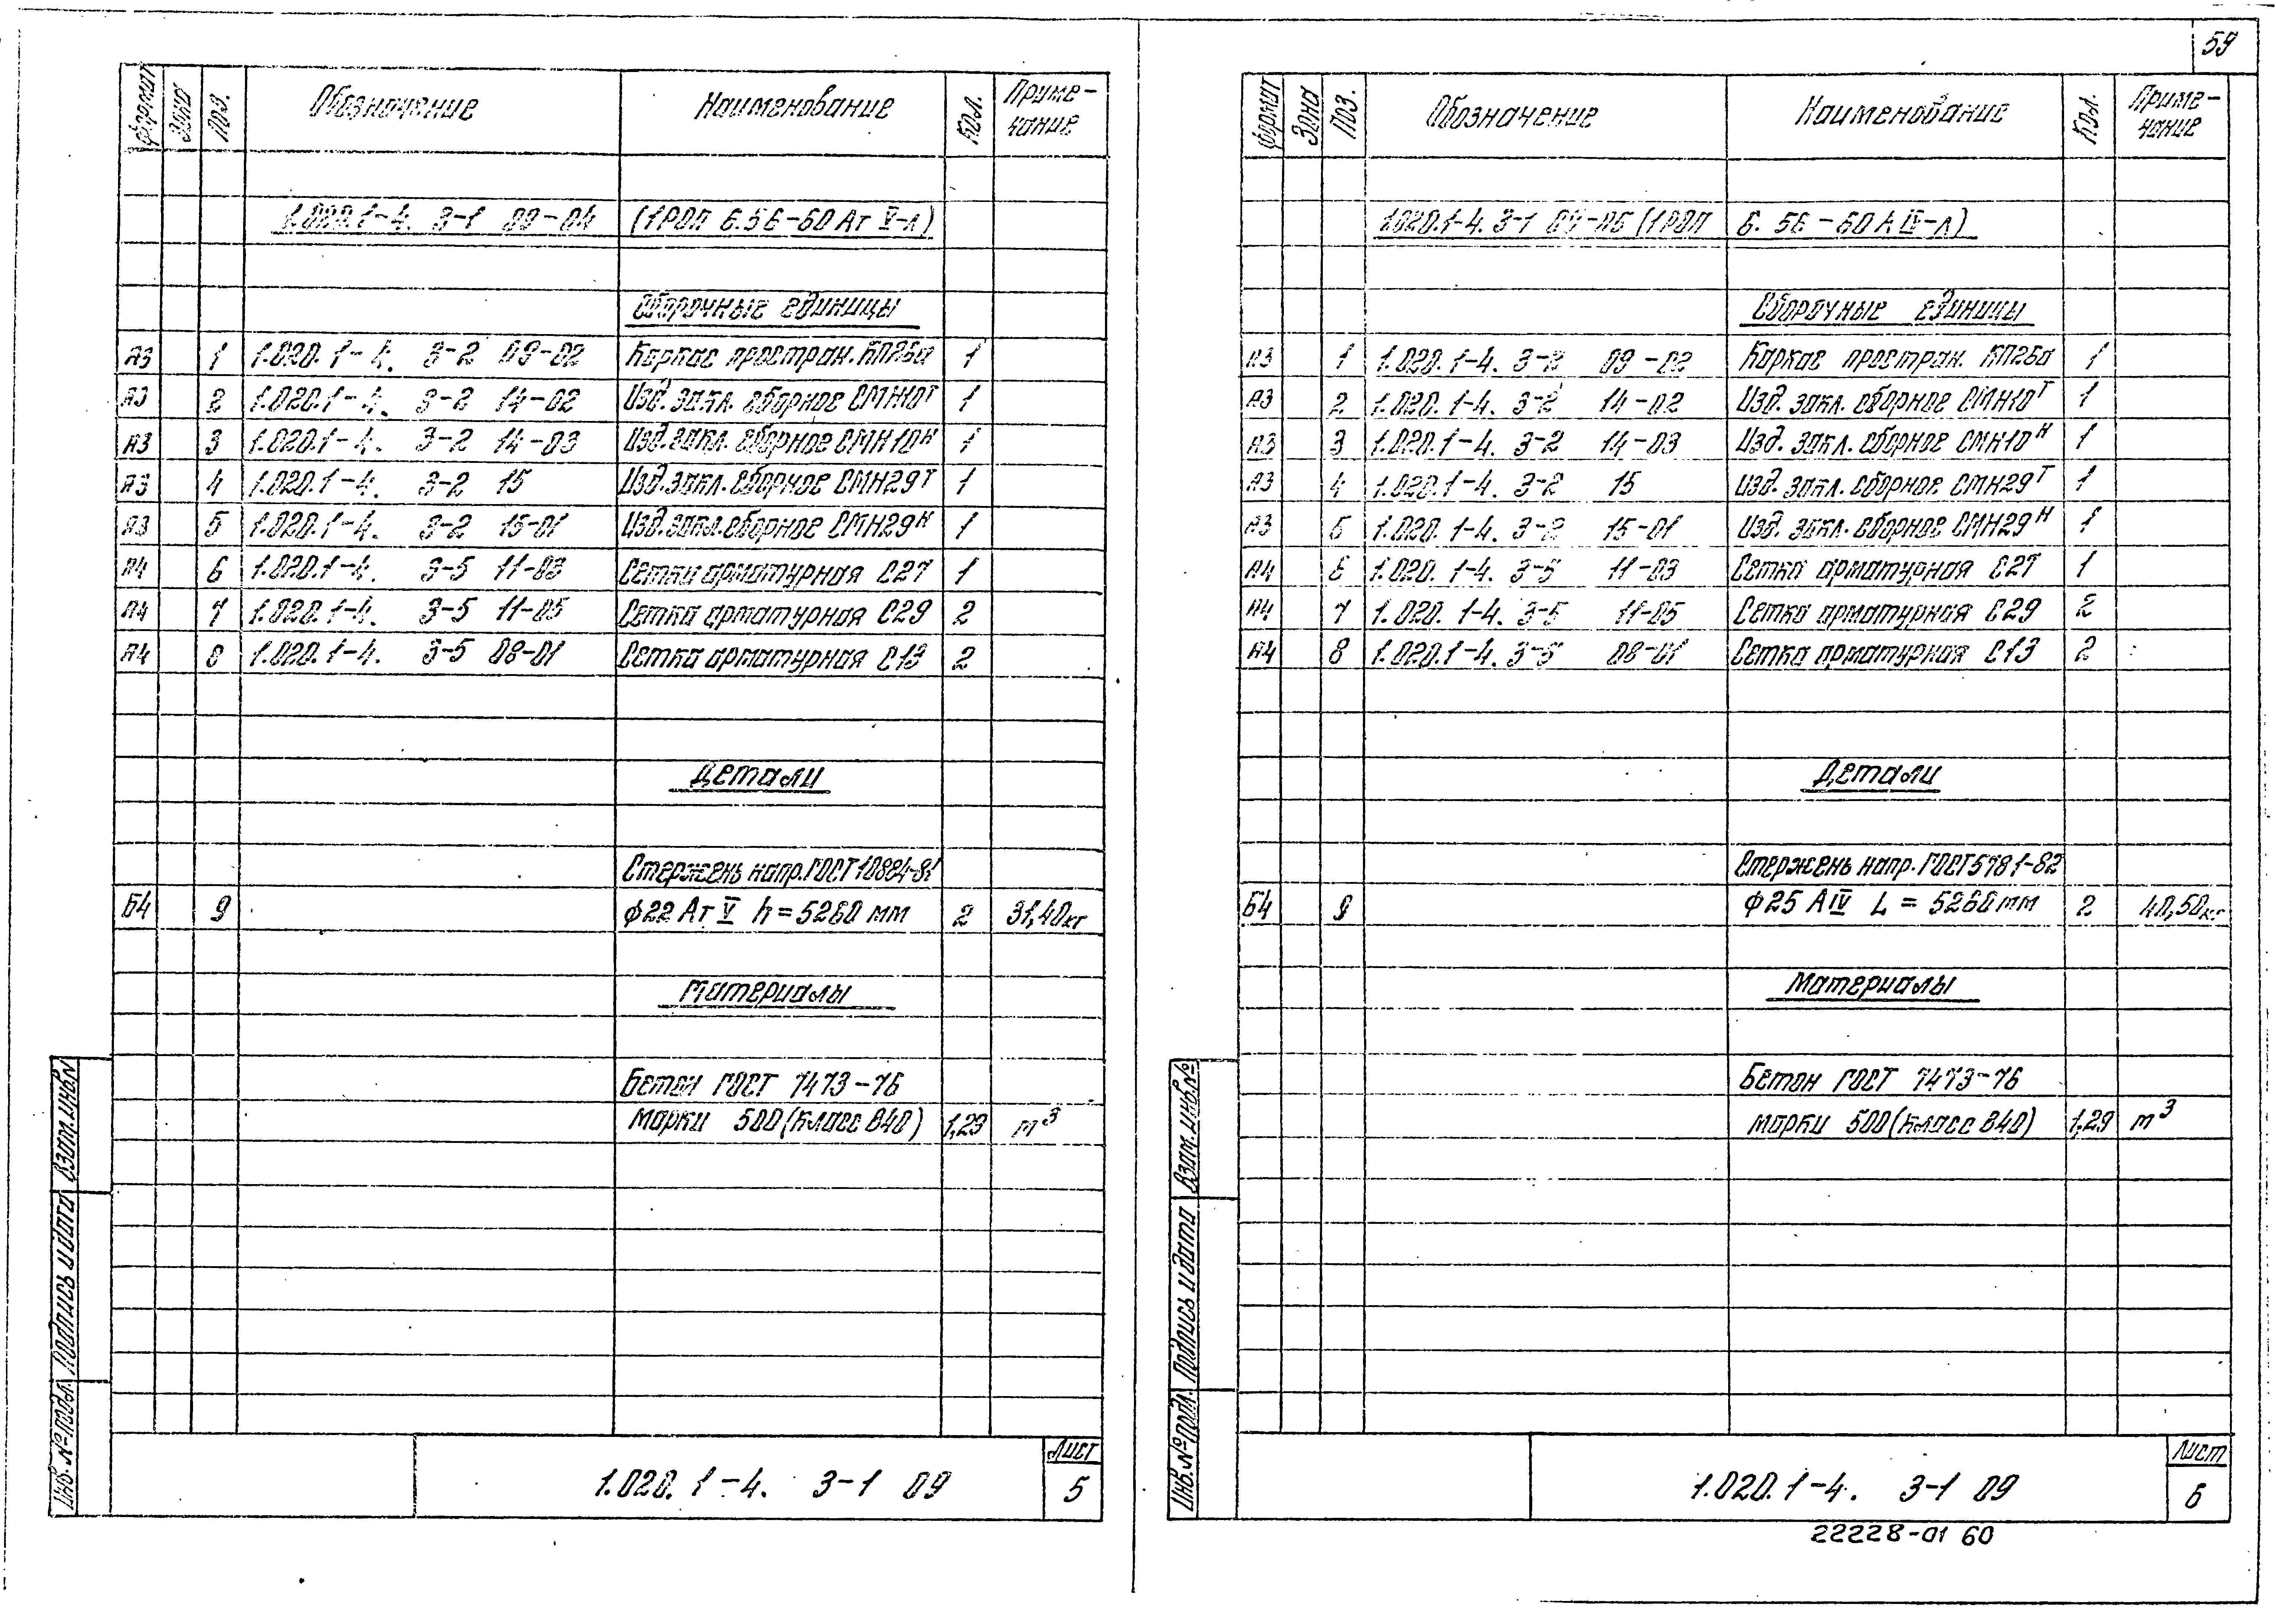 59
Формат Зона Поз. Обозначение Наименование Кол. Приме-
чание
1.020.1-4. 3-1 09-04 (1РОП 6.56-60 Ат V-л)
Сборочные единицы
А3 1 1.020.1-4. 3-2 09-02 Каркас простран. КП26а 1
А3 2 1.020.1-4. 3-2 14-02 Изд. закл. сборное СМН10Т 1
А3 3 1.020.1-4. 3-2 14-03 Изд. закл. сборное СМН10Н 1
А3 4 1.020.1-4. 3-2 15 Изд. закл. сборное СМН29Т 1
А3 5 1.020.1-4. 3-2 15-01 Изд. закл. сборное СМН29Н 1
А4 6 1.020.1-4. 3-5 11-03 Сетка арматурная С27 1
А4 7 1.020.1-4. 3-5 11-05 Сетка арматурная С29 2
А4 8 1.020.1-4. 3-5 08-01 Сетка арматурная С13 2
Детали
Стержень напр. ГОСТ 10884-81
Б4 9 ф22 Ат V h=5260 мм 2 31,40кг
Материалы
Бетон ГОСТ 7473-76
марки 500 (класс В40) 1,29 m³
Взам. инв. №
Подпись и дата
Инв. № подл.
1.020.1-4. 3-1 09
Лист
5
Формат Зона Поз. Обозначение Наименование Кол. Приме-
чание
1.020.1-4. 3-1 09-05 (1РОП 6.56-60 А IV-л)
Сборочные единицы
А3 1 1.020.1-4. 3-2 09-02 Каркас простран. КП26а 1
А3 2 1.020.1-4. 3-2 14-02 Изд. закл. сборное СМН10Т 1
А3 3 1.020.1-4. 3-2 14-03 Изд. закл. сборное СМН10Н 1
А3 4 1.020.1-4. 3-2 15 Изд. закл. сборное СМН29Т 1
А3 5 1.020.1-4. 3-2 15-01 Изд. закл. сборное СМН29Н 1
А4 6 1.020.1-4. 3-5 11-03 Сетка арматурная С27 1
А4 7 1.020.1-4. 3-5 11-05 Сетка арматурная С29 2
А4 8 1.020.1-4. 3-5 08-01 Сетка арматурная С13 2
Детали
Стержень напр. ГОСТ 5781-82
Б4 9 ф25 АIV L = 5260мм 2 40,50кг
Материалы
Бетон ГОСТ 7473-76
марки 500 (класс В40) 1,29 m³
Взам. инв. №
Подпись и дата
Инв. № подл.
1.020.1-4. 3-1 09
Лист
6
22228-01 60